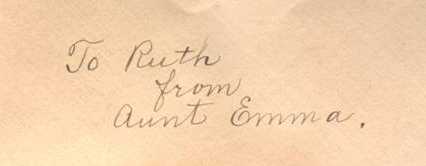 To Ruth
from
Aunt Emma.